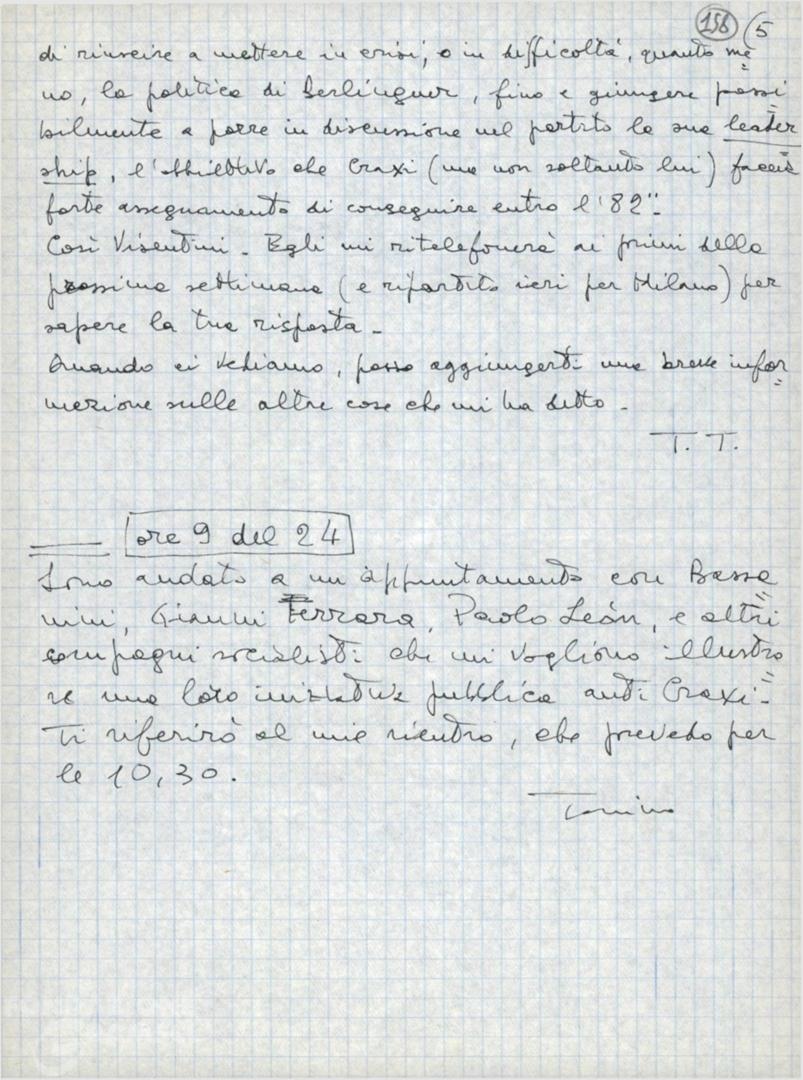 156 (5
di riuscire a mettere in crisi, o in difficoltà, quanto me
no, la politica di Berlinguer, fino a giungere possi
bilmente a porre in discussione nel partito la sua leader
ship, è l'obiettivo che Craxi (ma non soltanto lui) faccia
forte assegnamento di conseguire entro l'82".
Così Visentini. Egli mi ritelefonerà ai primi della
prossima settimana (è ripartito ieri per Milano) per
sapere la tua risposta.
Quando ci vediamo, posso aggiungerti una breve infor
mazione sulle altre cose che mi ha detto.
T. T.
ore 9 del 24
Sono andato a un appuntamento con Bassa
nini, Gianni Ferrara, Paolo León, e altri
compagni socialisti che mi vogliono illustra
re una loro iniziativa pubblica anti Craxi.
Ti riferirò al mio rientro, che prevedo per
le 10,30.
Tonino